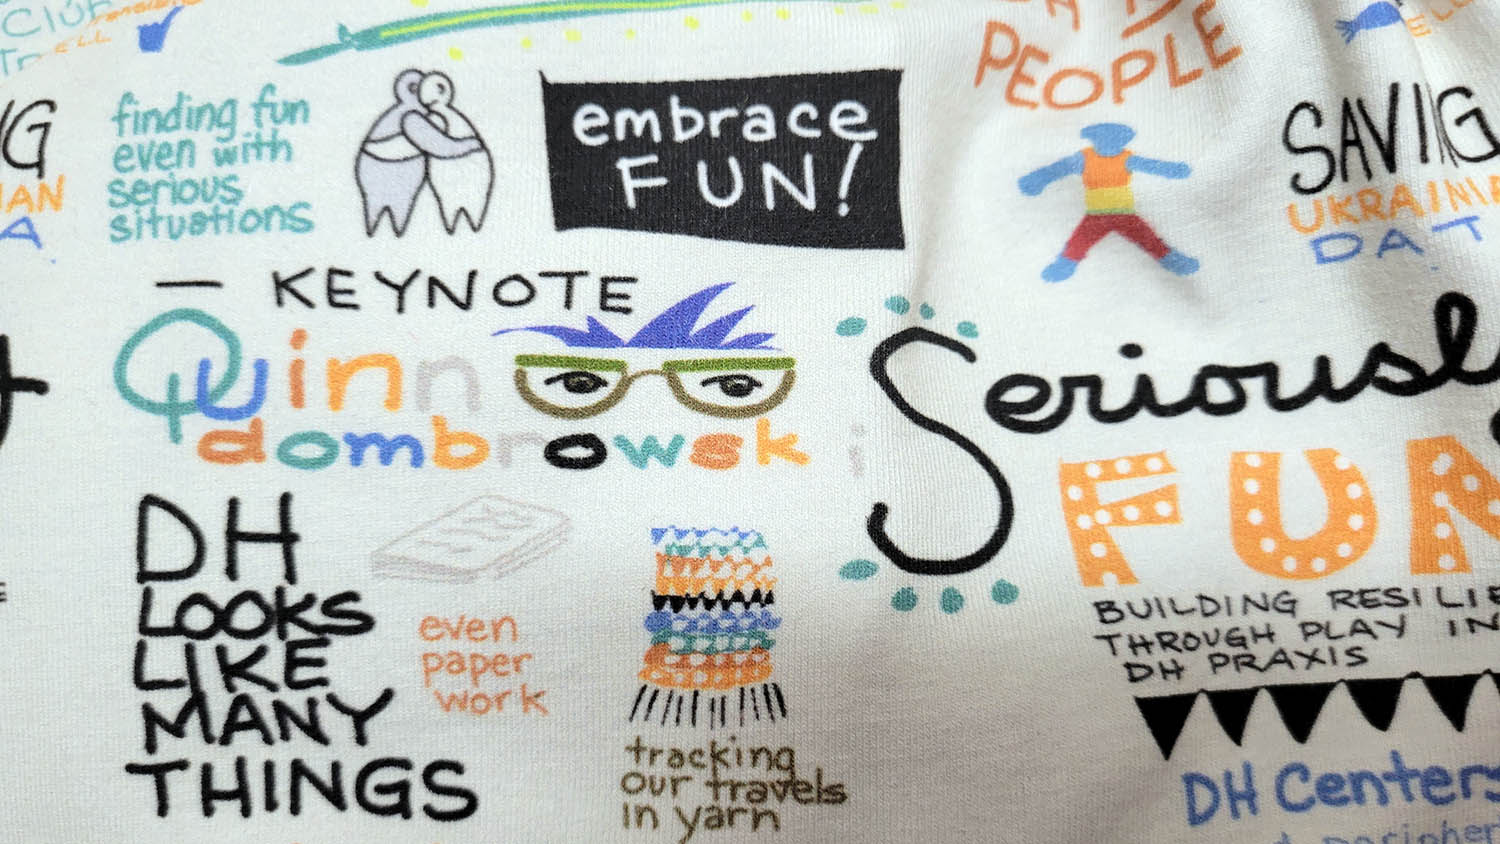 Club
Tr
ELL
finding fun
even with
serious
situations
embrace
FUN!
PEOPLE
SAVING
UKRAINE
DAT
— KEYNOTE
Quinn
dombrowski
Seriously
FUN
BUILDING RESILIE
THROUGH PLAY IN
DH PRAXIS
DH
LOOKS
LIKE
MANY
THINGS
even
paper
work
tracking
our travels
in yarn
DH Centers